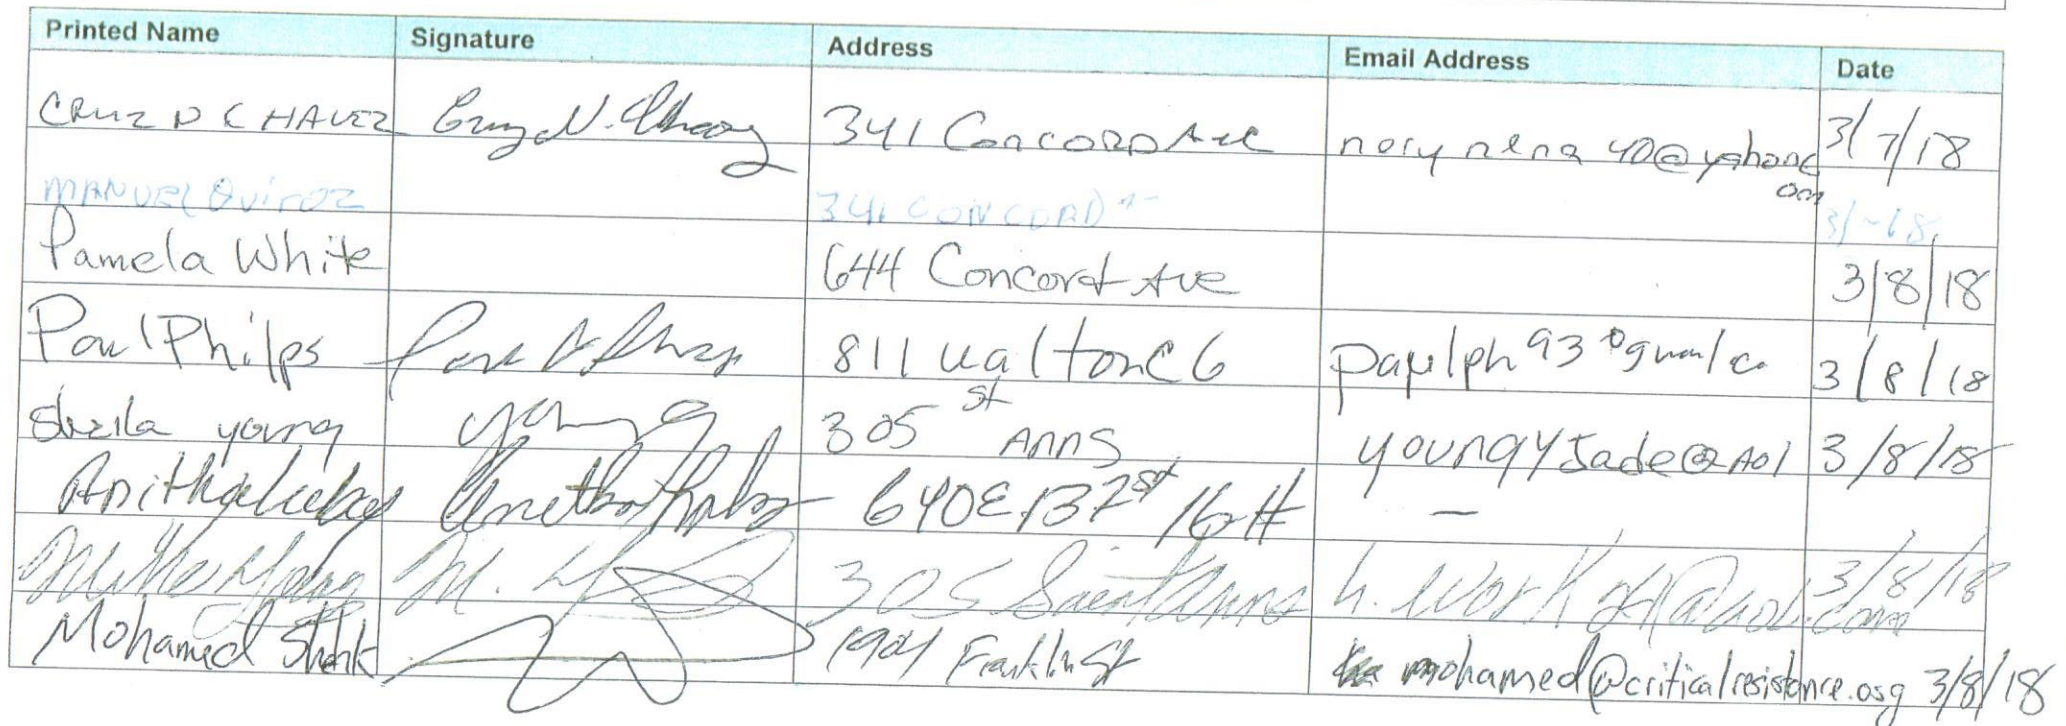 Printed Name Signature Address Email Address Date
CRUZ N CHAVEZ Cruz N. Chavez 341 Concord Ave norynena40@yahoo.com 3/7/18
MANUEL QUiROZ 341 CONCORD 3/ 18
Pamela White 644 Concord Ave 3/8/18
Paul Philps 811 walton 3/8/18
Sheila young young 305 st ANNS youngyJade@AOl 3/8/18
640 E 137 st 16H —
Young M. 305 Saint Anns 3/8/18
Mohamed 1904 Franklin St mohamed@criticalresistance.org 3/8/18